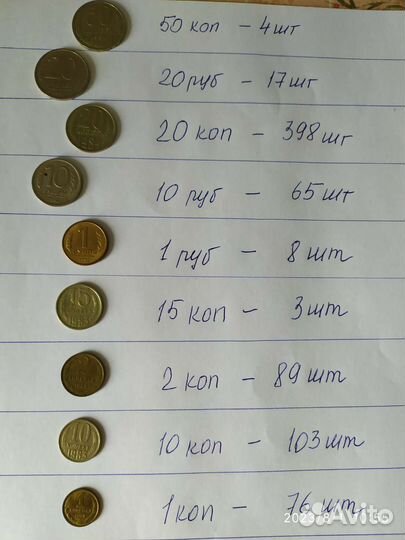 50 коп – 4шт
20 руб – 17шт
20 коп – 398шт
10 руб – 65шт
1 руб – 8 шт
15 коп – 3шт
2 коп – 89 шт
10 коп – 103шт
1 коп – 76 шт
Avito